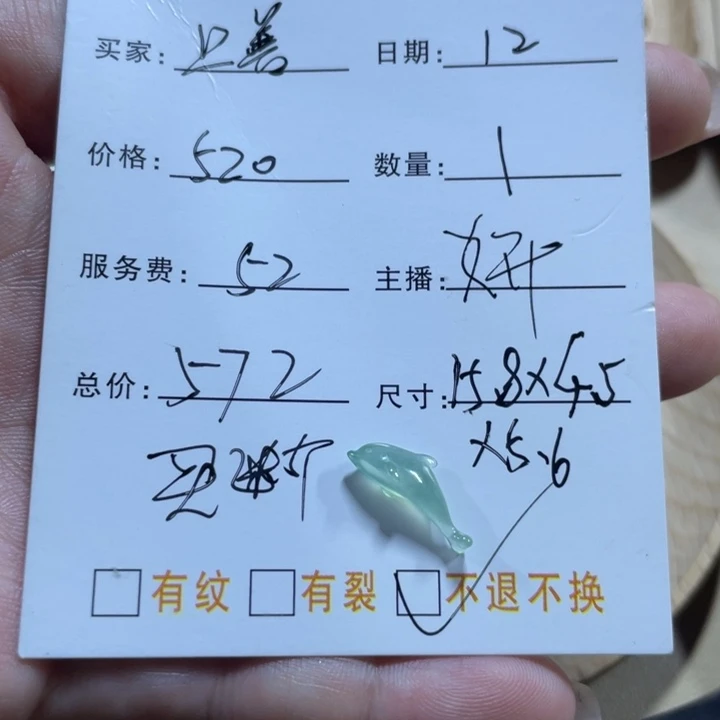 买家: 上善 日期: 12
价格: 520 数量: 1
服务费: 52 主播: 妍
总价: 572 尺寸: 15.8×4.5
×5.6
有纹 有裂 不退不换